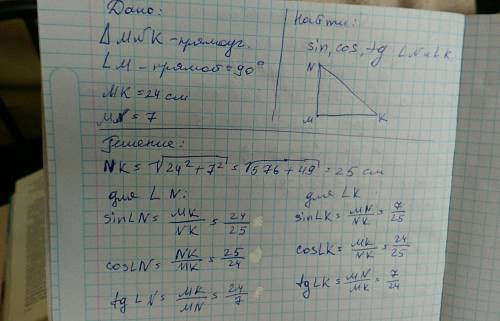 Дано:
Δ MNK - прямоуг.
∠M - прямой = 90°
MK = 24 см
MN = 7
Найти:
sin, cos, tg ∠N и ∠K
N
M
K
Решение:
NK = √24² + 7² = √576 + 49 = 25 см
для ∠N:
sin∠N = MK/NK = 24/25
cos∠N = NK/MK = 25/24
tg∠N = MK/MN = 24/7
для ∠K
sin∠K = MN/NK = 7/25
cos∠K = MK/NK = 24/25
tg∠K = MN/MK = 7/24